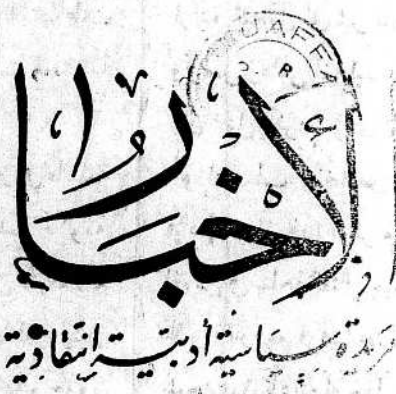 UAFFA
الاخبار
جريدة سياسية أدبية إنتقادية